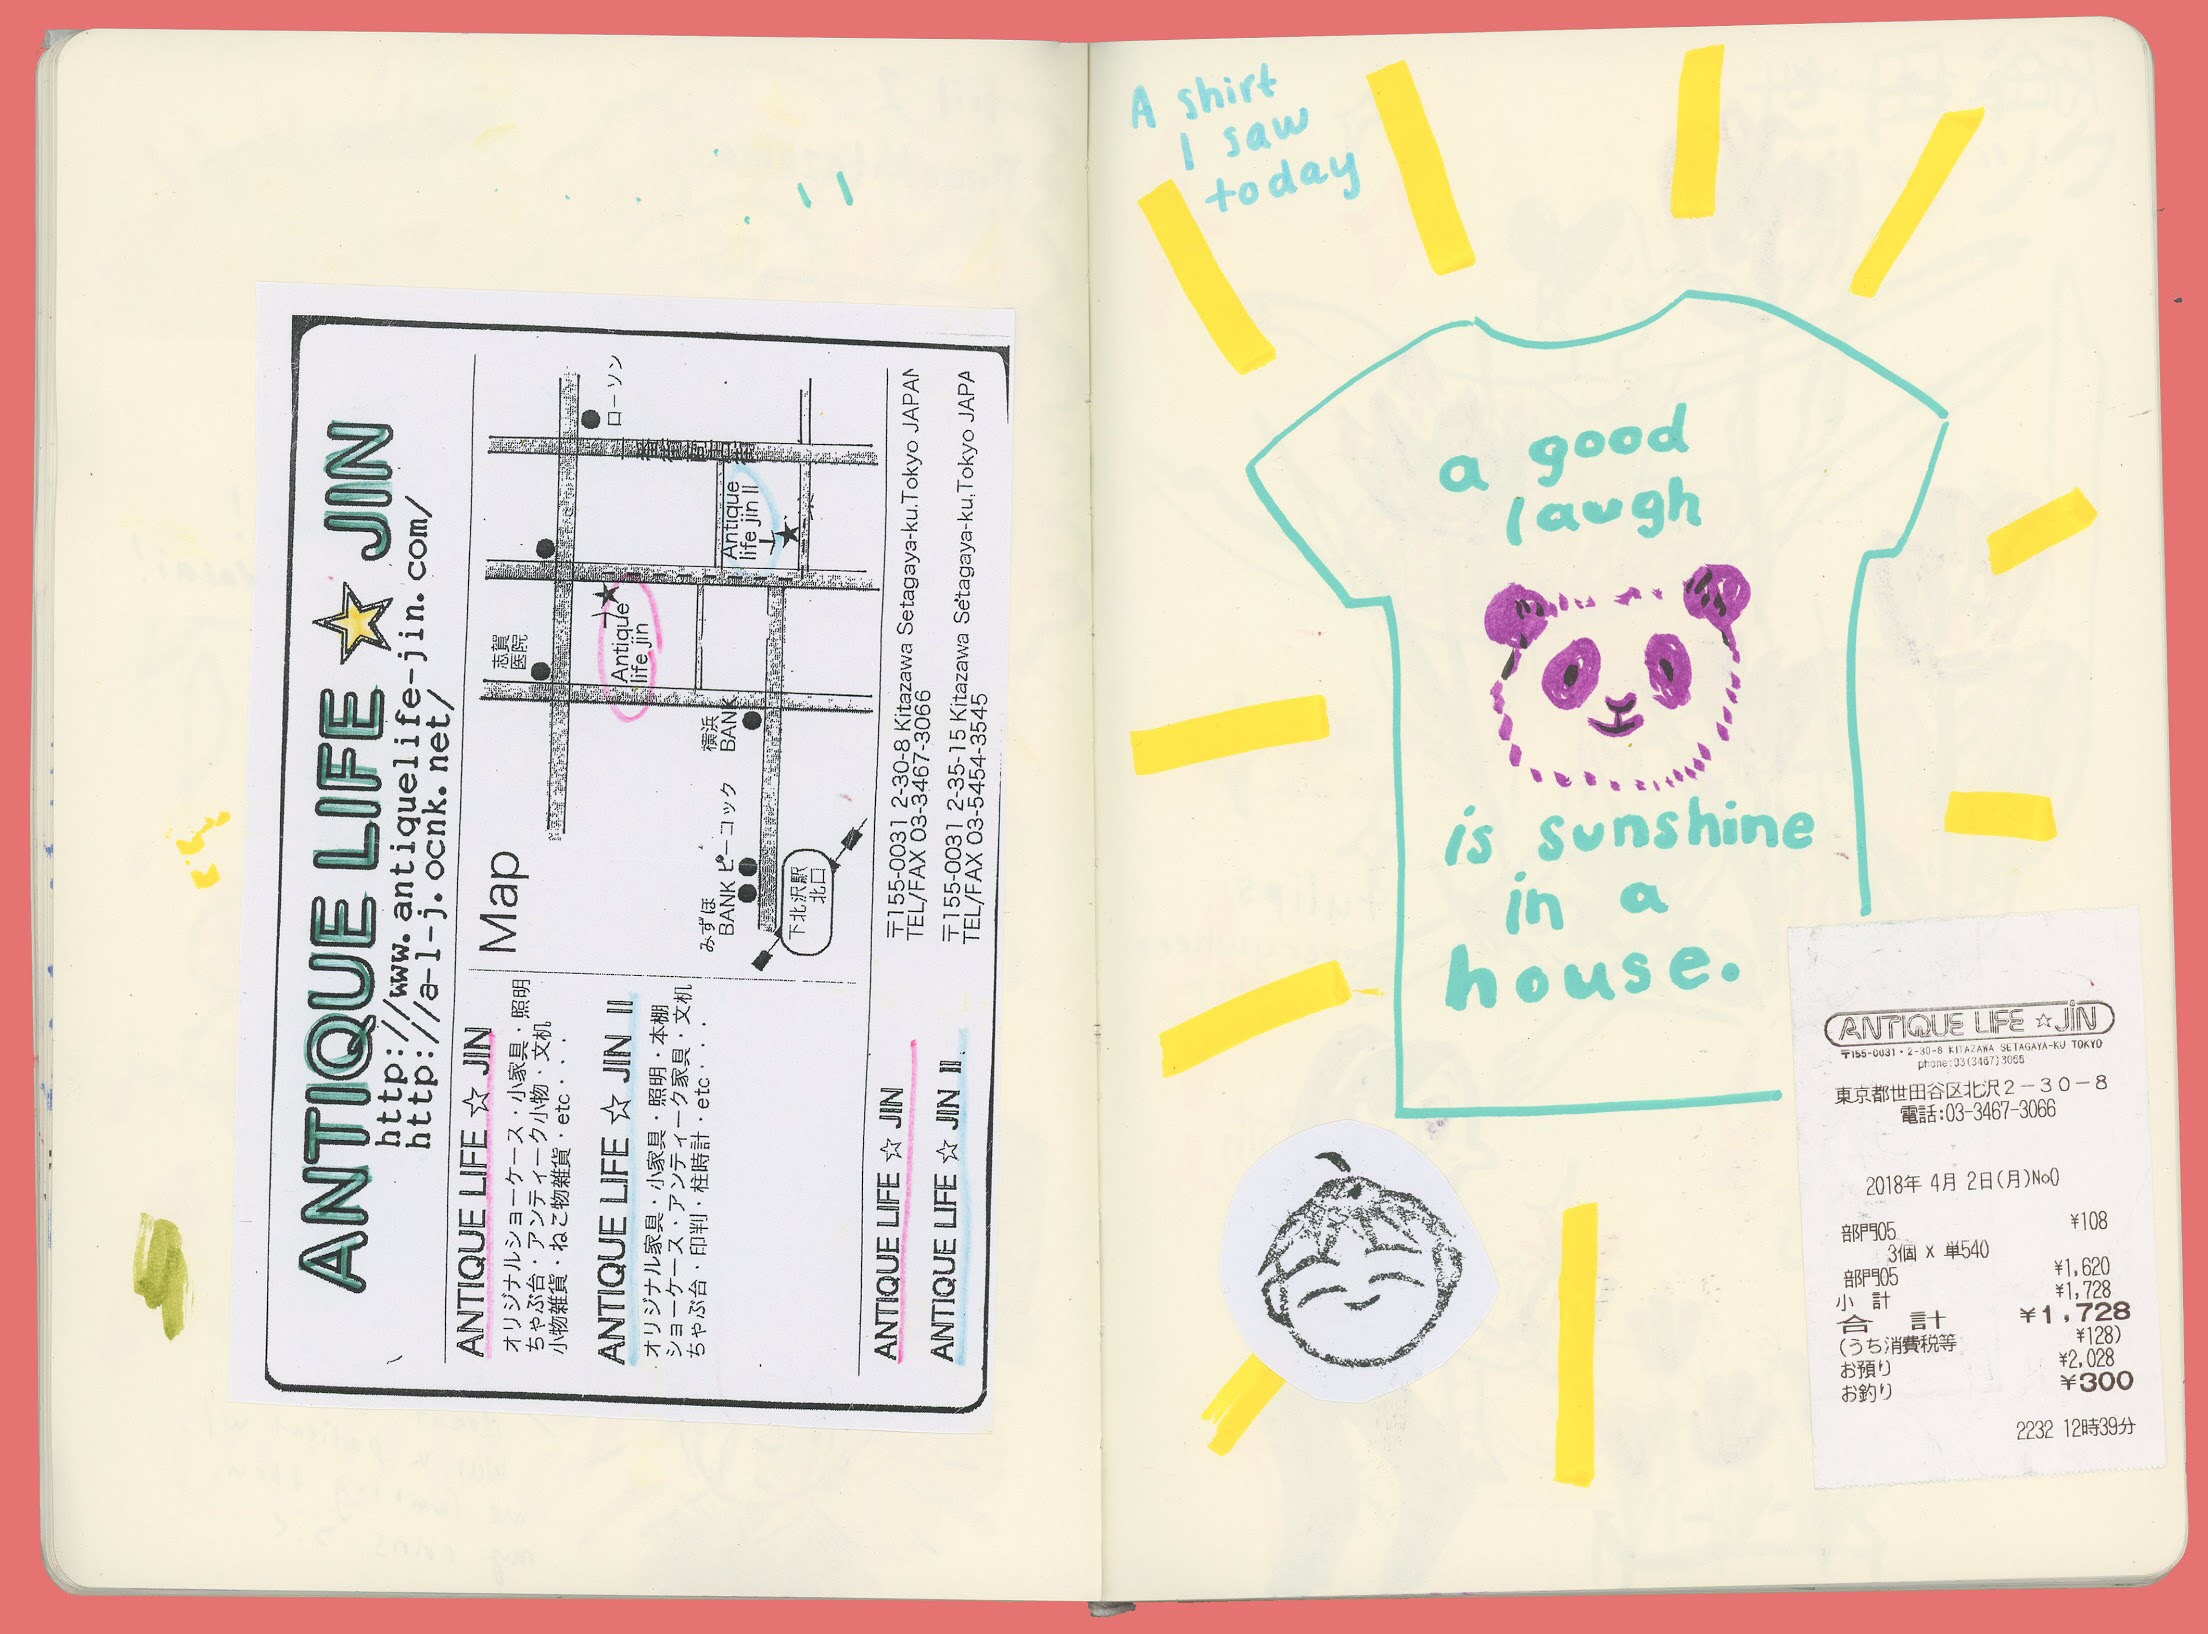 ANTIQUE LIFE ☆ JIN
http://www.antiquelife-jin.com/
http://a-l-j.ocnk.net/
ANTIQUE LIFE ☆ JIN
オリジナルショーケース・小家具・照明
ちゃぶ台・アンティーク小物・文机
小物雑貨・ねこ物雑貨・etc・・・
ANTIQUE LIFE ☆ JIN II
オリジナル家具・小家具・照明・本棚
ショーケース・アンティーク家具・文机
ちゃぶ台・印判・柱時計・etc・・・
Map
志賀
医院
ローソン
Antique
life jin
Antique
life jin II
横浜
BANK
みずほ
BANK
ピーコック
下北沢駅
北口
ANTIQUE LIFE ☆ JIN
〒155-0031 2-30-8 Kitazawa Setagaya-ku.Tokyo JAPAN
TEL/FAX 03-3467-3066
ANTIQUE LIFE ☆ JIN II
〒155-0031 2-35-15 Kitazawa Setagaya-ku.Tokyo JAPA
TEL/FAX 03-5454-3545
A shirt
I saw
today
a good
laugh
is sunshine
in a
house.
ANTIQUE LIFE ☆ JIN
〒155-0031・2-30-8 KITAZAWA SETAGAYA-KU TOKYO
phone:03(3467)3066
東京都世田谷区北沢2-30-8
電話:03-3467-3066
2018年 4月 2日(月)No0
部門05 ¥108
3個 X 単540
部門05 ¥1,620
小 計 ¥1,728
合 計 ¥1,728
(うち消費税等 ¥128)
お預り ¥2,028
お釣り ¥300
2232 12時39分